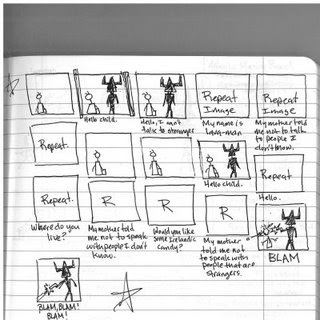 Repeat Image
Repeat Image
Hello child.
Hello, I
My name is
My mother told me not to talk to people I don't know.
Repeat.
Repeat.
Hello child.
Hello.
Repeat.
R
R
R
Where do you live?
My mother told me not to speak with people I don't know.
Would you like some Icelandic candy?
My mother told me not to speak with people that are strangers.
BLAM
BLAM, BLAM! BLAM!